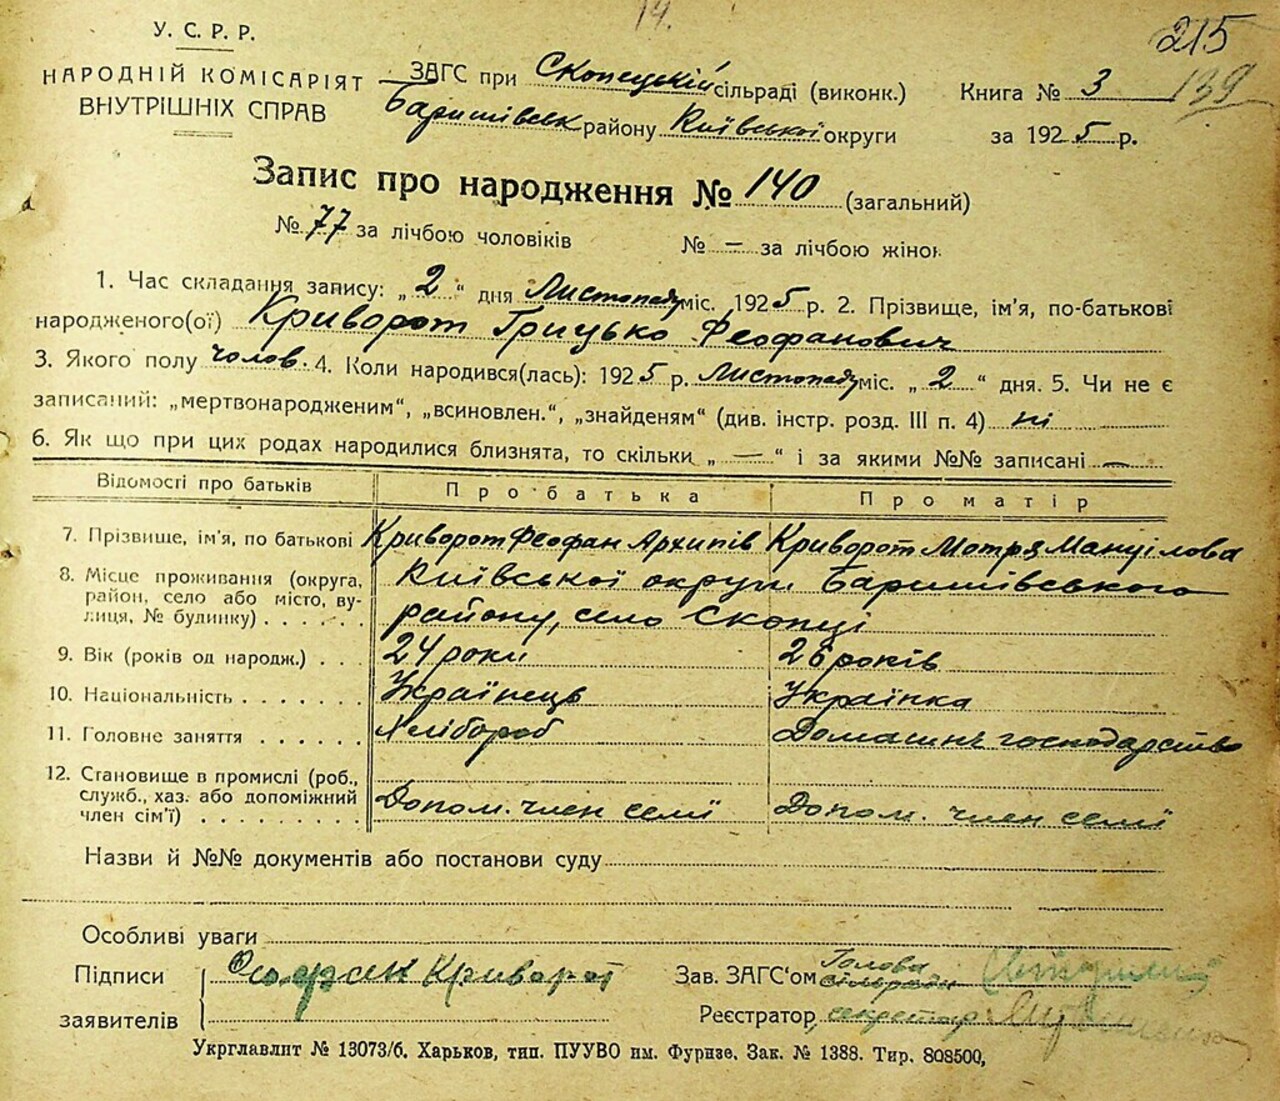 14.
У. С. Р. Р.
215
НАРОДНІЙ КОМІСАРІЯТ
ВНУТРІШНІХ СПРАВ
139
ЗАГС при Скопецькій сільраді (виконк.)
Книга № 3
Баришівськ району Київської округи
за 1925 р.
Запис про народження № 140 (загальний)
№ 77 за лічбою чоловіків № — за лічбою жінок
1. Час складання запису: „ 2 “ дня Листопаду міс. 1925 р. 2. Прізвище, ім'я, по-батькові
народженого(ої) Криворот Грицько Феофанович
3. Якого полу чолов. 4. Коли народився(лась): 1925 р. Листопаду міс. „ 2 “ дня. 5. Чи не є
записаний: „мертвонародженим“, „всиновлен.“, „знайденям“ (див. інстр. розд. III п. 4) ні
6. Як що при цих родах народилися близнята, то скільки „ — “ і за якими №№ записані —
Відомості про батьків Про батька Про матір
7. Прізвище, ім'я, по батькові Криворот Феофан Архипів Криворот Мотря Мануілова
8. Місце проживання (округа, район, село або місто, вулиця, № будинку) Київської округи Баришівського
району, село Скопці
9. Вік (років од народж.) 24 роки 26 років
10. Національність Українець Українка
11. Головне заняття Хлібороб Домашнє господарство
12. Становище в промислі (роб.,
служб., хаз. або допоміжний
член сім'ї) Допом. член семї Допом. член семї
Назви й №№ документів або постанови суду
Особливі уваги
Підписи Феофан Криворот Зав. ЗАГС'ом Голова сільради
заявителів Реєстратор, секретар
Укрглавлит № 13073/б. Харьков, тип. ПУУВО им. Фрунзе. Зак. № 1388. Тир. 808500,